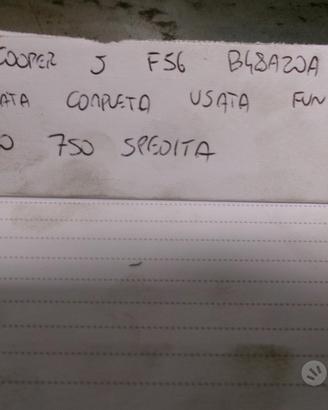 COOPER S F56 B48A20A
ATA COMPLETA USATA FUN
O 750 SPEDITA